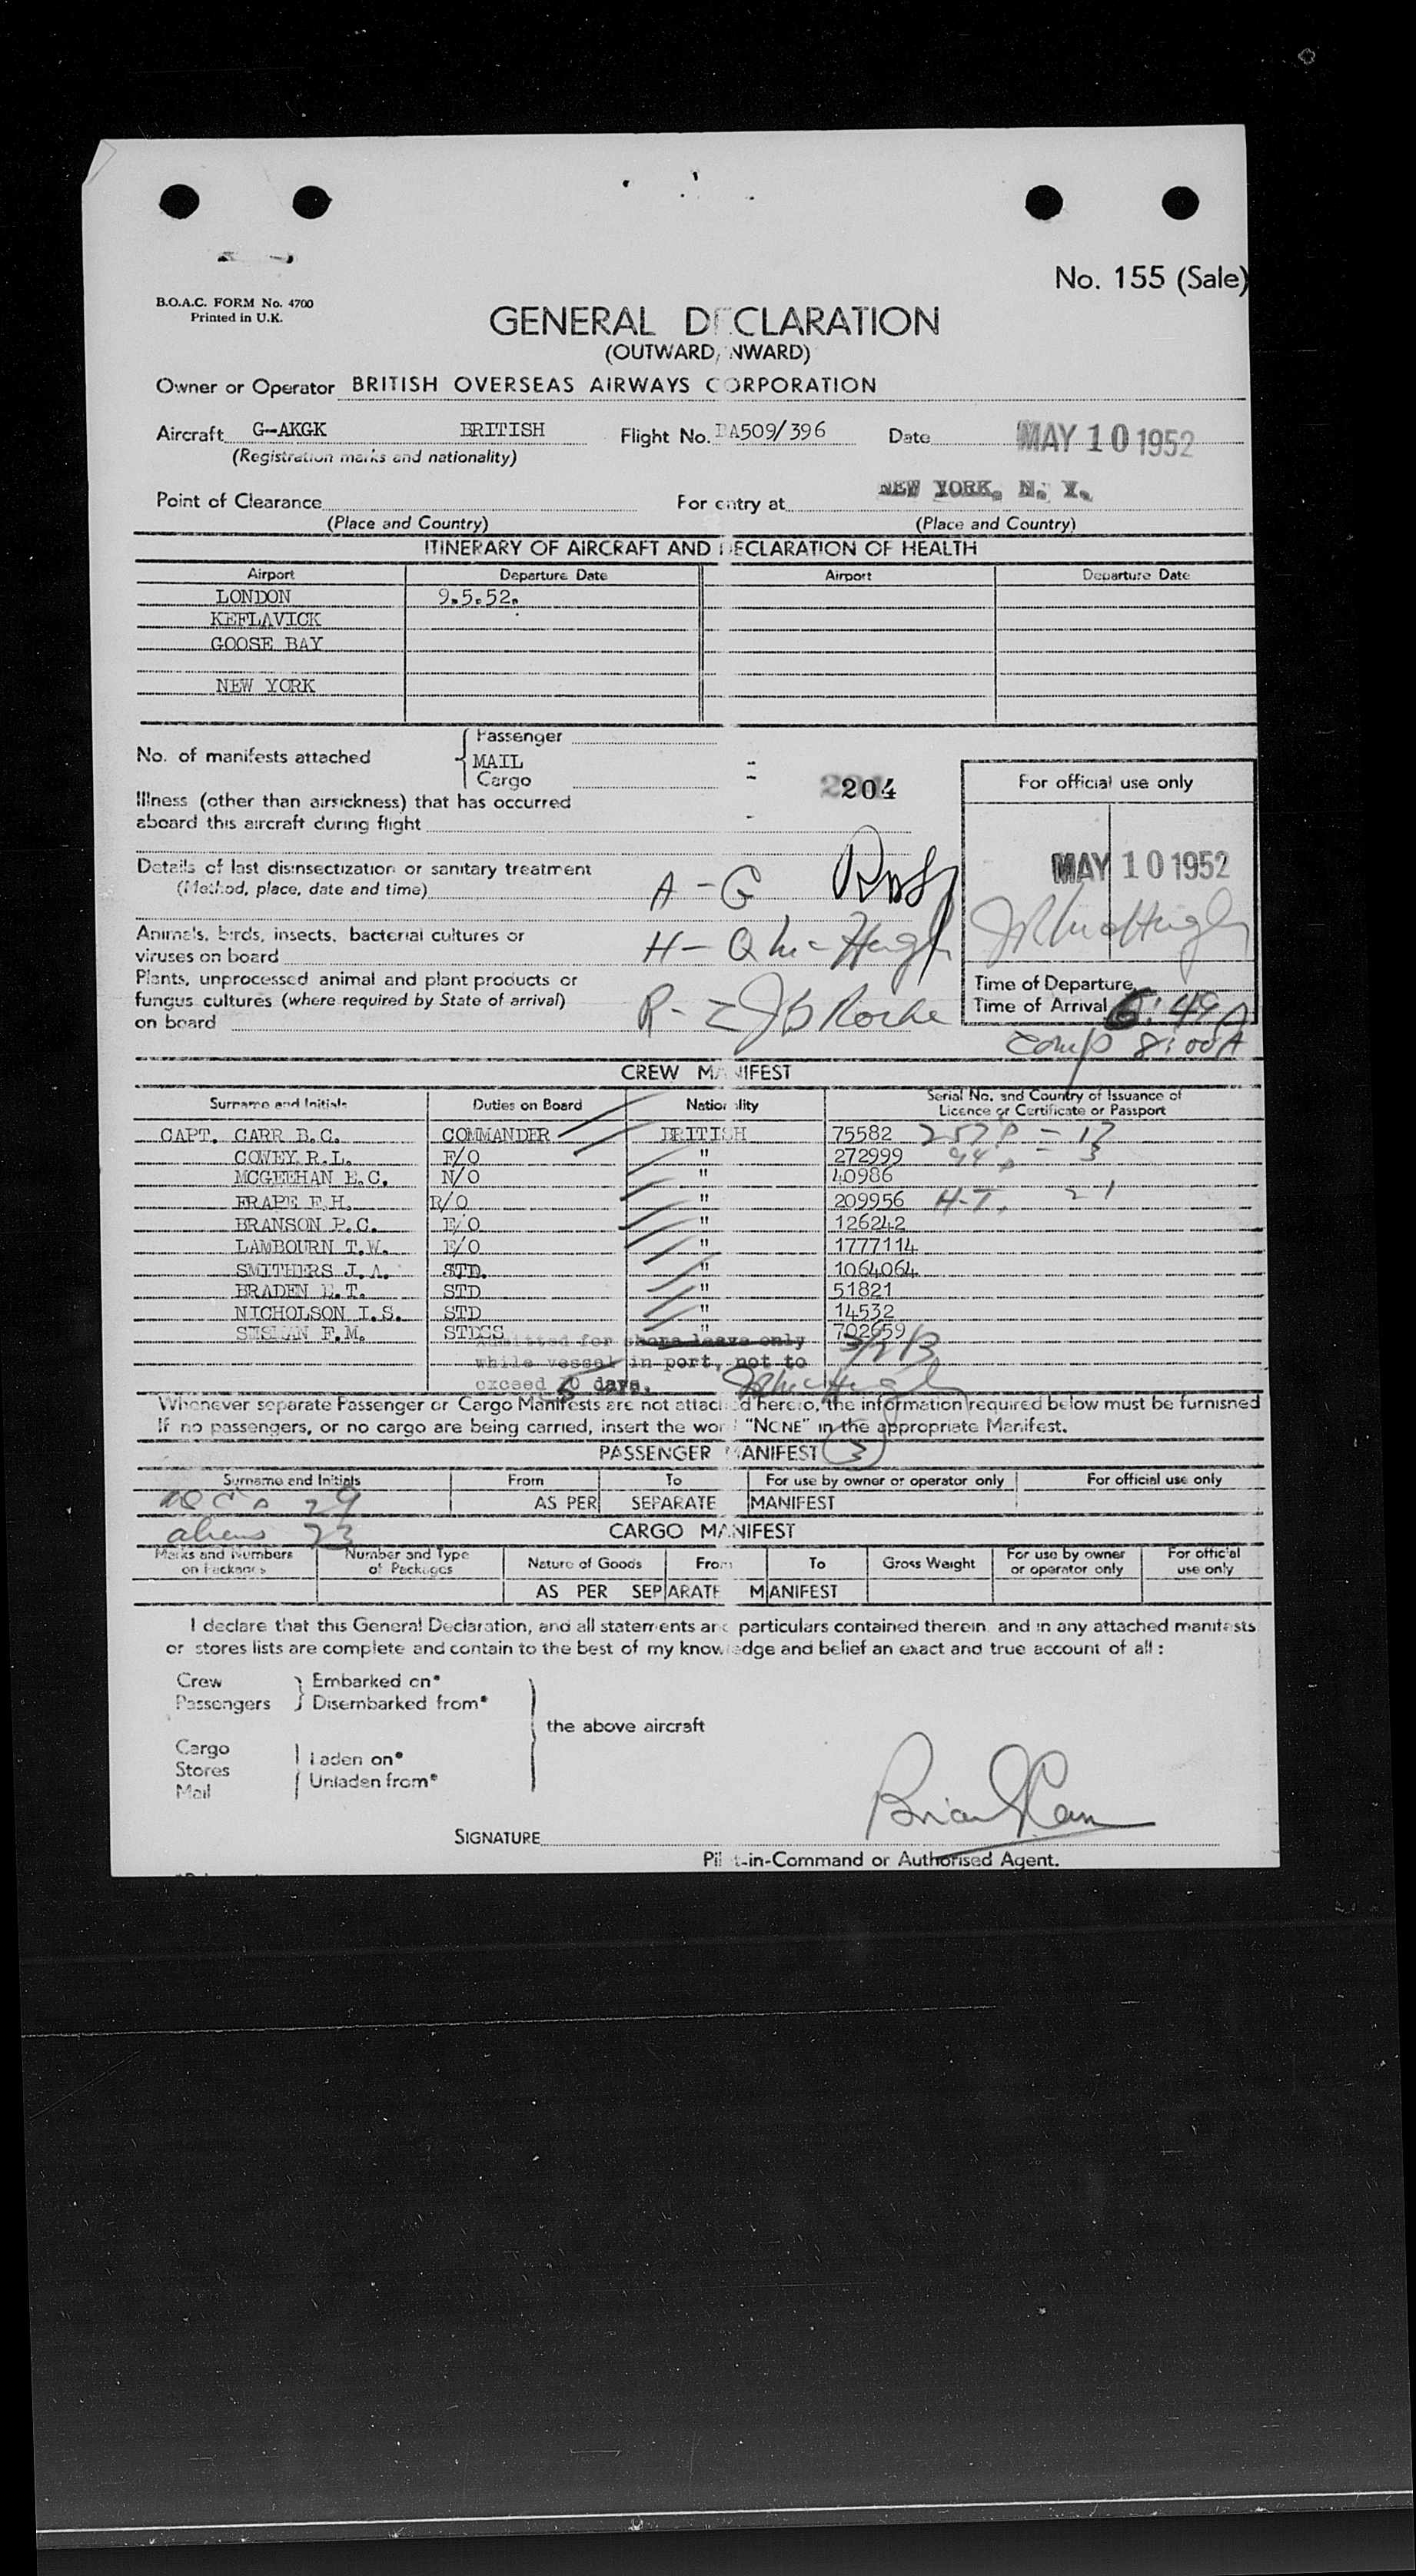 No. 155 (Sale)
B.O.A.C. FORM No. 4700
Printed in U.K.
GENERAL DECLARATION
(OUTWARD/INWARD)
Owner or Operator BRITISH OVERSEAS AIRWAYS CORPORATION
Aircraft G-AKGK BRITISH Flight No. BA509/396 Date MAY 10 1952
(Registration marks and nationality)
Point of Clearance For entry at NEW YORK, N. Y.
(Place and Country) (Place and Country)
ITINERARY OF AIRCRAFT AND DECLARATION OF HEALTH
Airport Departure Date Airport Departure Date
LONDON 9.5.52.
KEFLAVICK
GOOSE BAY
NEW YORK
No. of manifests attached
Passenger
MAIL -
Cargo -
204
For official use only
Illness (other than airsickness) that has occurred
aboard this aircraft during flight -
MAY 10 1952
Details of last disinsectization or sanitary treatment
(Method, place, date and time) A - G
Animals, birds, insects, bacterial cultures or
viruses on board H - Q McHugh
Plants, unprocessed animal and plant products or
fungus cultures (where required by State of arrival)
on board R - Z J B Roche
Time of Departure
Time of Arrival 6:49 A
Comp 8:00 A
CREW MANIFEST
Surname and Initials Duties on Board Nationality Serial No. and Country of Issuance of
Licence or Certificate or Passport
CAPT. CARR B.C. COMMANDER BRITISH 75582 257 P - 17
COWEY R.L. F/O " 272999 94 P - 3
MCGEEHAN E.C. N/O " 40986
FRAPE F.H. R/O " 209956 H-T. 21
BRANSON P.C. E/O " 126242
LAMBOURN T.W. E/O " 1777114
SMITHERS J.A. STD. " 1064064
BRADEN E.T. STD " 51821
NICHOLSON I.S. STD " 14532
F.M. STDSS " 702659
Admitted for shore leave only
while vessel in port, not to
exceed days.
Whenever separate Passenger or Cargo Manifests are not attached hereto, the information required below must be furnished
If no passengers, or no cargo are being carried, insert the word "NONE" in the appropriate Manifest.
PASSENGER MANIFEST (3)
Surname and Initials From To For use by owner or operator only For official use only
29 AS PER SEPARATE MANIFEST
aliens 23
CARGO MANIFEST
Marks and Numbers
on Packages Number and Type
of Packages Nature of Goods From To Gross Weight For use by owner
or operator only For official
use only
AS PER SEPARATE MANIFEST
I declare that this General Declaration, and all statements and particulars contained therein and in any attached manifests
or stores lists are complete and contain to the best of my knowledge and belief an exact and true account of all :
Crew
Passengers
Embarked on*
Disembarked from*
the above aircraft
Cargo
Stores
Mail
Laden on*
Unladen from*
SIGNATURE Brian Carr
Pilot-in-Command or Authorised Agent.